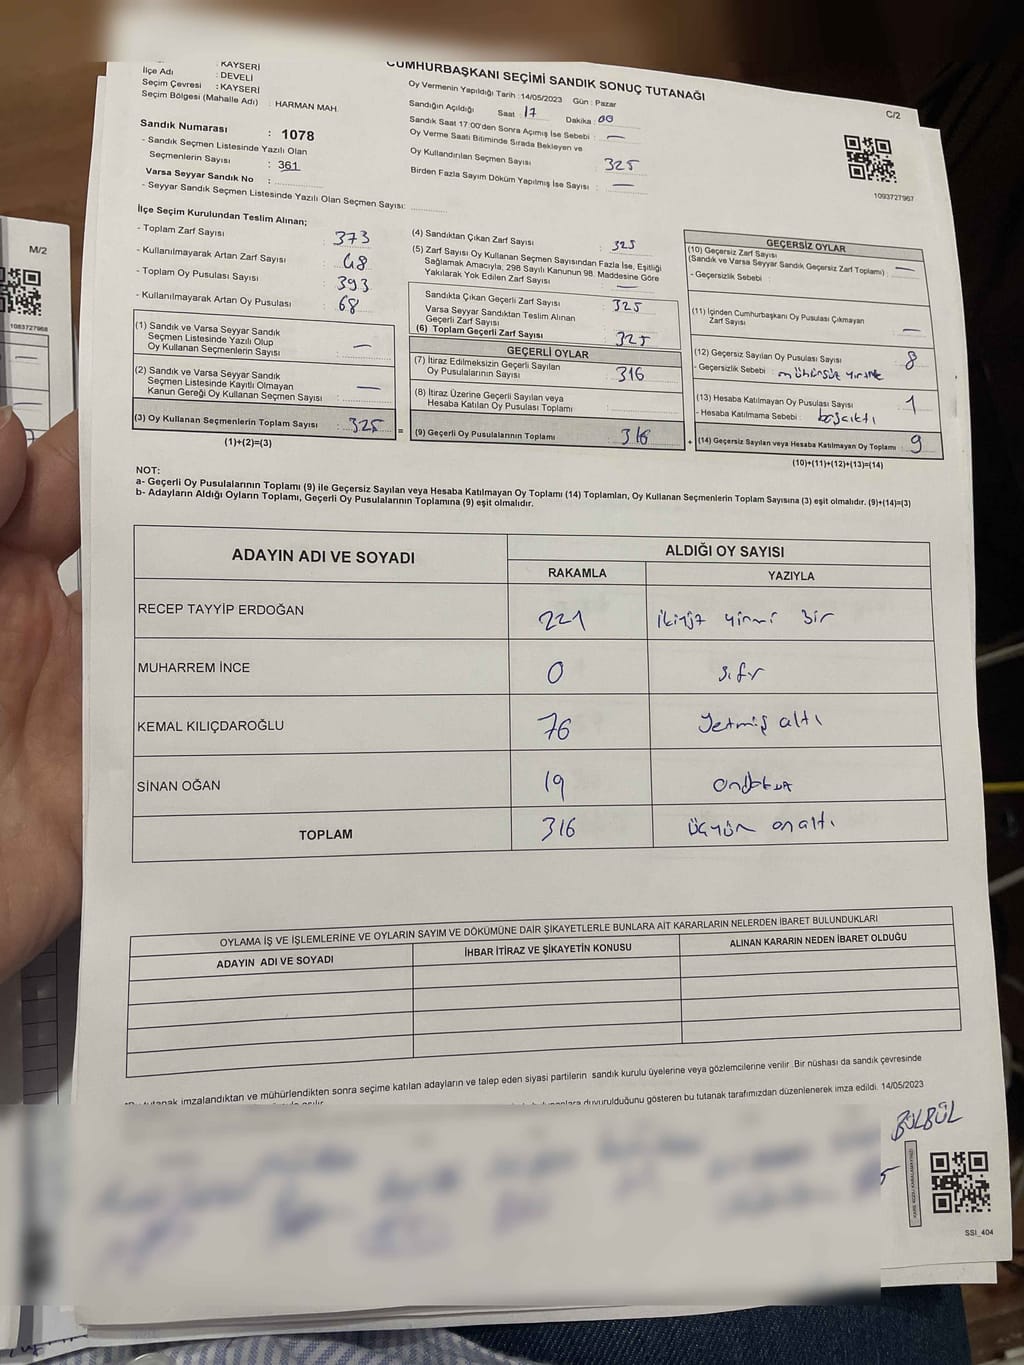 CUMHURBAŞKANI SEÇİMİ SANDIK SONUÇ TUTANAĞI
C/2
: KAYSERİ
İlçe Adı : DEVELİ
Seçim Çevresi : KAYSERİ
Seçim Bölgesi (Mahalle Adı) : HARMAN MAH.
Sandık Numarası : 1078
- Sandık Seçmen Listesinde Yazılı Olan
Seçmenlerin Sayısı : 361
Varsa Seyyar Sandık No :
- Seyyar Sandık Seçmen Listesinde Yazılı Olan Seçmen Sayısı:
Oy Vermenin Yapıldığı Tarih : 14/05/2023 Gün : Pazar
Sandığın Açıldığı Saat : 17 Dakika : 00
Sandık Saat 17:00'den Sonra Açımış İse Sebebi : —
Oy Verme Saati Bitiminde Sırada Bekleyen ve
Oy Kullandırılan Seçmen Sayısı : 325
Birden Fazla Sayım Döküm Yapılmış İse Sayısı : —
1093727967
İlçe Seçim Kurulundan Teslim Alınan;
- Toplam Zarf Sayısı : 373
- Kullanılmayarak Artan Zarf Sayısı : 48
- Toplam Oy Pusulası Sayısı : 393
- Kullanılmayarak Artan Oy Pusulası : 68
(1) Sandık ve Varsa Seyyar Sandık
Seçmen Listesinde Yazılı Olup
Oy Kullanan Seçmenlerin Sayısı : —
(2) Sandık ve Varsa Seyyar Sandık
Seçmen Listesinde Kayıtlı Olmayan
Kanun Gereği Oy Kullanan Seçmen Sayısı : —
(3) Oy Kullanan Seçmenlerin Toplam Sayısı : 325
(1)+(2)=(3)
=
(4) Sandıktan Çıkan Zarf Sayısı : 325
(5) Zarf Sayısı Oy Kullanan Seçmen Sayısından Fazla İse, Eşitliği
Sağlamak Amacıyla, 298 Sayılı Kanunun 98. Maddesine Göre
Yakılarak Yok Edilen Zarf Sayısı : —
Sandıkta Çıkan Geçerli Zarf Sayısı : 325
Varsa Seyyar Sandıktan Teslim Alınan
Geçerli Zarf Sayısı
(6) Toplam Geçerli Zarf Sayısı : 325
GEÇERLİ OYLAR
(7) İtiraz Edilmeksizin Geçerli Sayılan
Oy Pusulalarının Sayısı : 316
(8) İtiraz Üzerine Geçerli Sayılan veya
Hesaba Katılan Oy Pusulası Toplamı :
(9) Geçerli Oy Pusulalarının Toplamı : 316
+
GEÇERSİZ OYLAR
(10) Geçersiz Zarf Sayısı
(Sandık ve Varsa Seyyar Sandık Geçersiz Zarf Toplamı) : —
- Geçersizlik Sebebi :
(11) İçinden Cumhurbaşkanı Oy Pusulası Çıkmayan
Zarf Sayısı : —
(12) Geçersiz Sayılan Oy Pusulası Sayısı : 8
- Geçersizlik Sebebi : mühürsüz
(13) Hesaba Katılmayan Oy Pusulası Sayısı : 1
- Hesaba Katılmama Sebebi : boş çıktı
(14) Geçersiz Sayılan veya Hesaba Katılmayan Oy Toplamı : 9
(10)+(11)+(12)+(13)=(14)
NOT:
a- Geçerli Oy Pusulalarının Toplamı (9) ile Geçersiz Sayılan veya Hesaba Katılmayan Oy Toplamı (14) Toplamları, Oy Kullanan Seçmenlerin Toplam Sayısına (3) eşit olmalıdır. (9)+(14)=(3)
b- Adayların Aldığı Oyların Toplamı, Geçerli Oy Pusulalarının Toplamına (9) eşit olmalıdır.
ADAYIN ADI VE SOYADI ALDIĞI OY SAYISI
RAKAMLA YAZIYLA
RECEP TAYYİP ERDOĞAN 221 ikiyüz yirmi bir
MUHARREM İNCE 0 sıfır
KEMAL KILIÇDAROĞLU 76 Yetmiş altı
SİNAN OĞAN 19 ondokuz
TOPLAM 316 üçyüz onaltı
OYLAMA İŞ VE İŞLEMLERİNE VE OYLARIN SAYIM VE DÖKÜMÜNE DAİR ŞİKAYETLERLE BUNLARA AİT KARARLARIN NELERDEN İBARET BULUNDUKLARI
ADAYIN ADI VE SOYADI İHBAR İTİRAZ VE ŞİKAYETİN KONUSU ALINAN KARARIN NEDEN İBARET OLDUĞU
tutanak imzalandıktan ve mühürlendikten sonra seçime katılan adayların ve talep eden siyasi partilerin sandık kurulu üyelerine veya gözlemcilerine verilir. Bir nüshası da sandık çevresinde
duyurulduğunu gösteren bu tutanak tarafımızdan düzenlenerek imza edildi. 14/05/2023
BÜLBÜL
SSI_404
M/2
1093727968